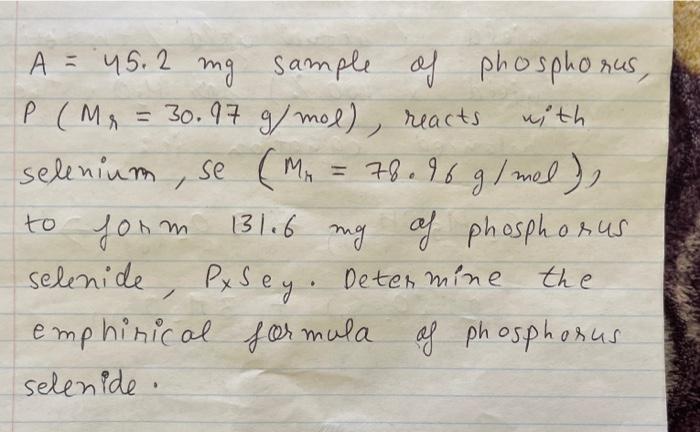 A = 45.2 mg sample of phosphorus,
P (Mr = 30.97 g/mol), reacts with
selenium, se (Mr = 78.96 g/mol),
to form 131.6 mg of phosphorus
selenide, PxSey. Determine the
emphirical formula of phosphorus
selenide.